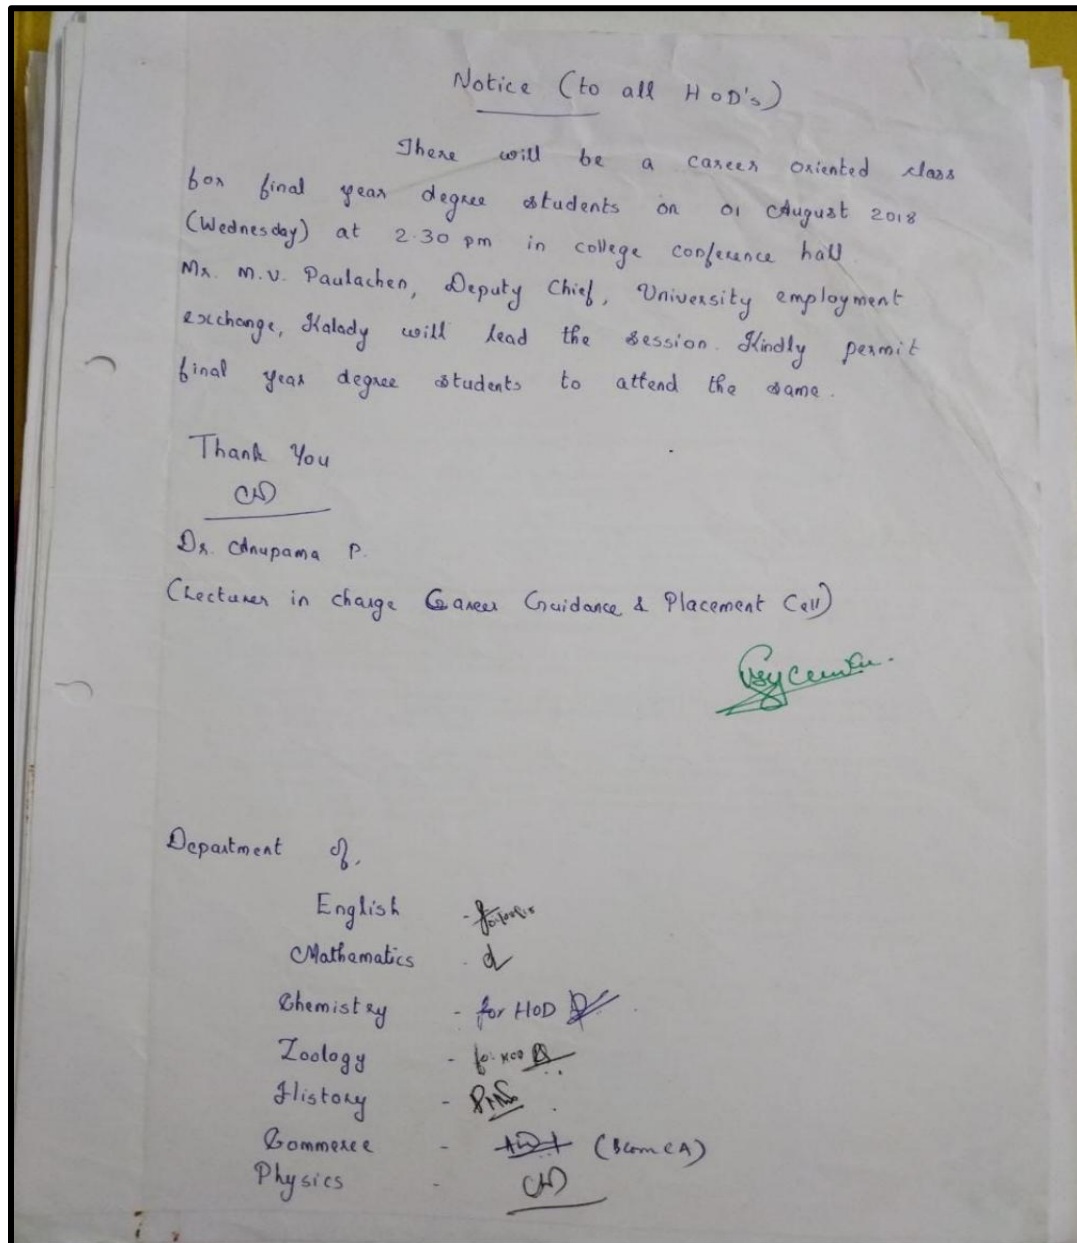 Notice (to all HoD's)
There will be a career oriented class
for final year degree students on 01 August 2018
(Wednesday) at 2.30 pm in college conference hall.
Mr. M.V. Paulachen, Deputy Chief, University employment
exchange, Kalady will lead the session. Kindly permit
final year degree students to attend the same.
Thank You
Dr. Anupama P.
(Lecturer in charge Career Guidance & Placement Cell)
Department of,
English -
Mathematics -
Chemistry - for HOD
Zoology - for HOD
History -
Commerce - (Bcom CA)
Physics -